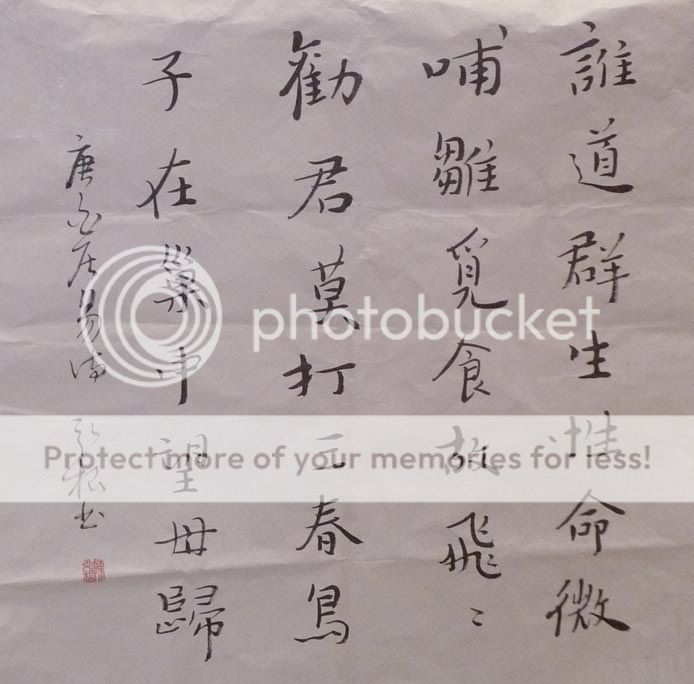 誰道群生性命微
哺雛覓食故飛〻
勸君莫打三春鳥
子在巢中望母歸
唐白居易诗 松书
photobucket
Protect more of your memories for less!